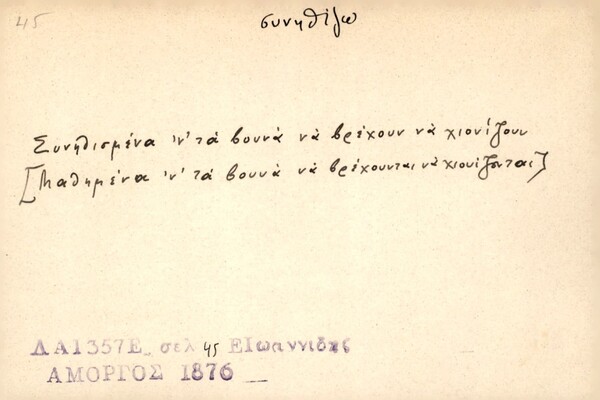 45
συνηθίζω
Συνηθισμένα 'ν' τά βουνά νά βρέχουν νά χιονίζουν
[Μαθημένα 'ν' τά βουνά νά βρέχουνται νά χιονίζονται]
ΛΑ1357Ε σελ 45 ΕΙωαννιδης
ΑΜΟΡΓΟΣ 1876